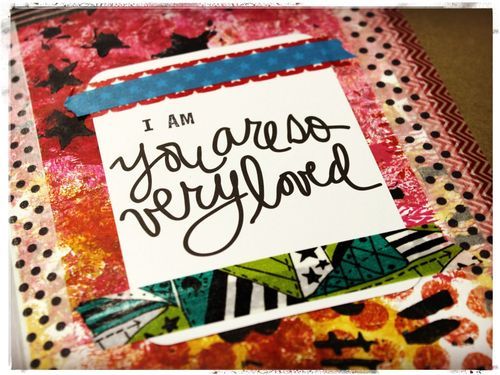 I AM
you are so
very loved